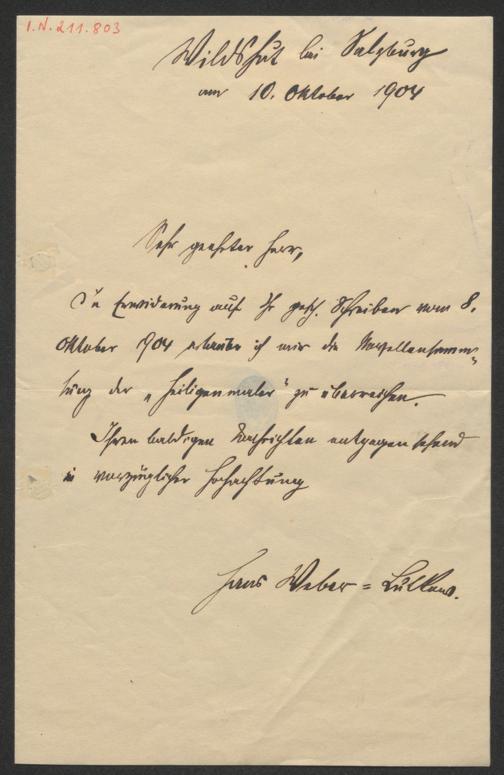 I.N. 211.803
Wildshut bei Salzburg
am 10. Oktober 1904
Sehr geehrter Herr,
In Erwiderung auf Ihr gesch. Schreiben vom 8.
Oktober 904 erlaube ich mir die Novellensamm-
lung der „Heiligenmaler" zu überreichen.
Ihren baldigen Nachrichten entgegen sehend
in vorzüglicher Hochachtung
Hans Weber = Lutkow.